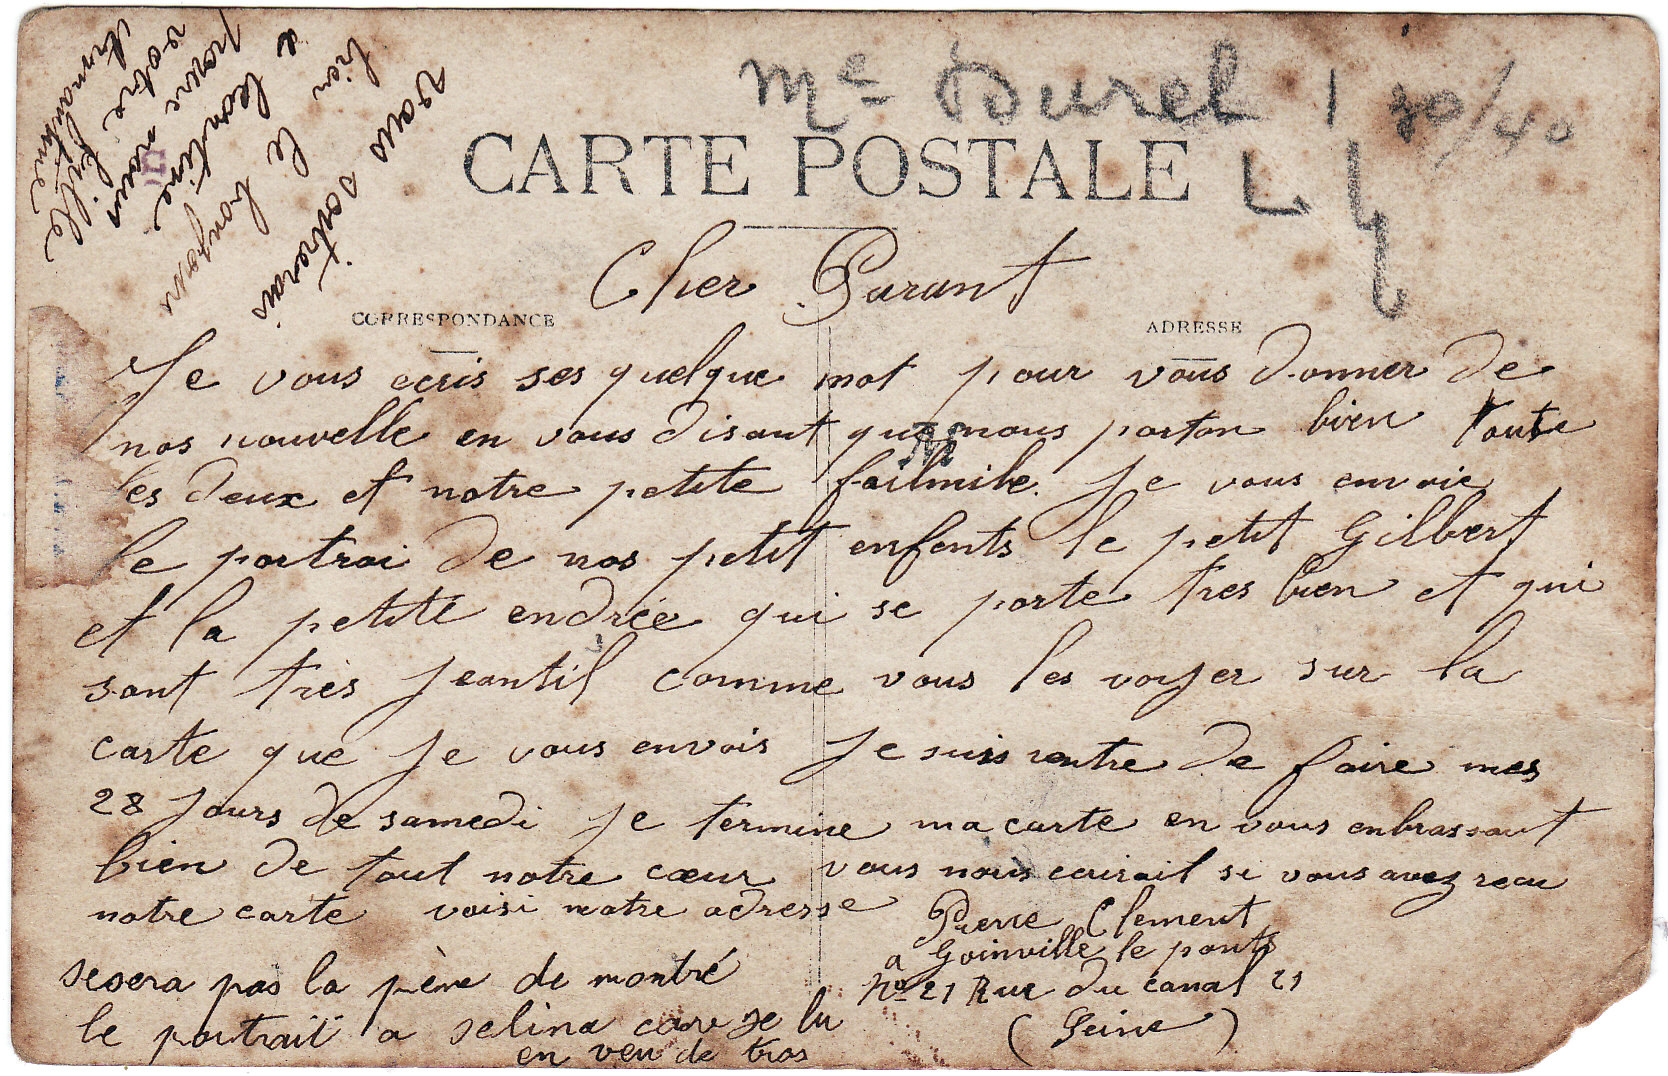 Me Durel 1 30/40
CARTE POSTALE
Cher Parant
CORRESPONDANCE
ADRESSE
Je vous ecris ses quelque mot pour vous donner de
nos nouvelle en vous disant que nous porton bien toute
les deux et notre petite failmile. Je vous envoie
le portrai de nos petit enfents le petit Gilbert
et la petite endrée qui se porte tres bien et qui
sont très jeantil comme vous les voyer sur la
carte que Je vous envois Je suis rentre de faire mes
28 Jours de samedi Je termine ma carte en vous enbrassant
bien de tout notre cœur vous nous ecrirait si vous avez recu
notre carte voisi notre adresse
Pierre Clement
a Joinville le ponts
No 21 Rue du canal 21
(Seine)
sesera pas la pène de montré
le portrait a selina car je lu
en veu de tros
vous donnerais
bien le bonjour
a leontine
pour nous
votre fille
Armantine